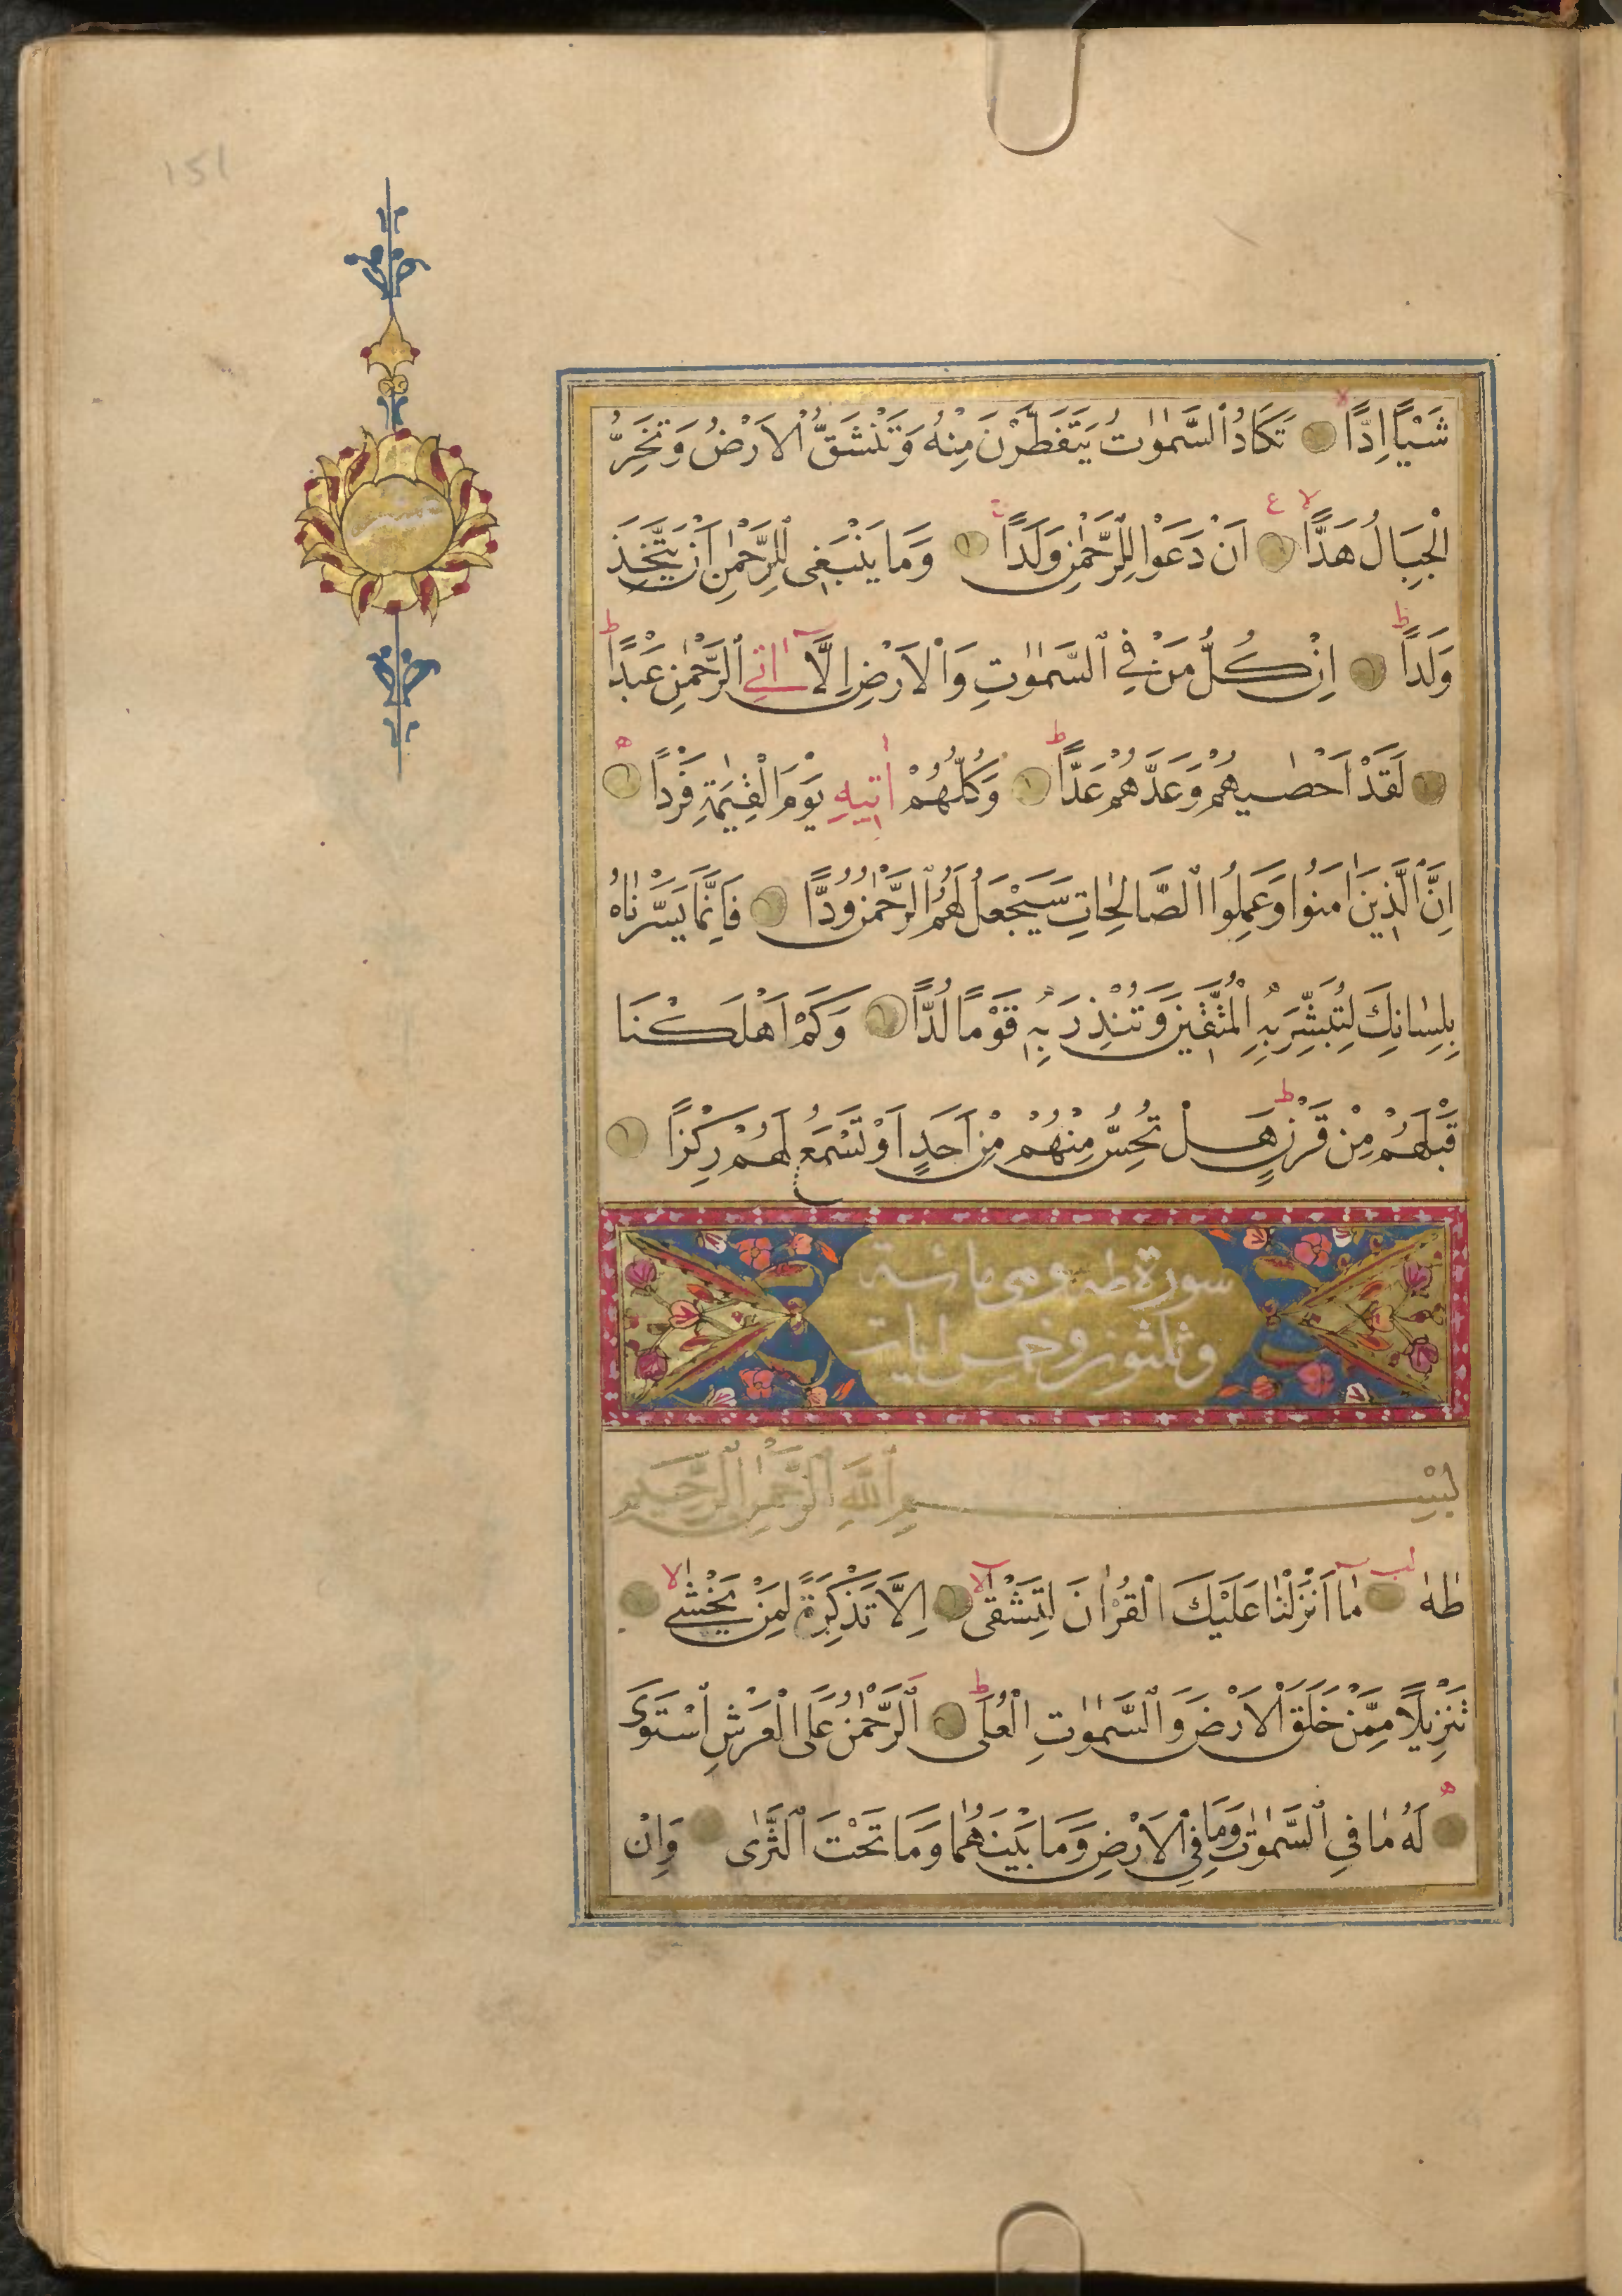 151
شَيْـًٔا اِدًّا تَكَادُ السَّمٰوٰتُ يَتَفَطَّرْنَ مِنْهُ وَتَنْشَقُّ الْاَرْضُ وَتَخِرُّ
الْجِبَالُ هَدًّا اَنْ دَعَوْا لِلرَّحْمٰنِ وَلَدًا وَمَا يَنْبَغِى لِلرَّحْمٰنِ اَنْ يَتَّخِذَ
وَلَدًا اِنْ كُلُّ مَنْ فِى السَّمٰوٰتِ وَالْاَرْضِ اِلَّا اٰتِى الرَّحْمٰنِ عَبْدًا
لَقَدْ اَحْصٰيهُمْ وَعَدَّهُمْ عَدًّا وَكُلُّهُمْ اٰتِيهِ يَوْمَ الْقِيٰمَةِ فَرْدًا
اِنَّ الَّذِينَ اٰمَنُوا وَعَمِلُوا الصَّالِحَاتِ سَيَجْعَلُ لَهُمُ الرَّحْمٰنُ وُدًّا فَاِنَّمَا يَسَّرْنَاهُ
بِلِسَانِكَ لِتُبَشِّرَ بِهِ الْمُتَّقِينَ وَتُنْذِرَ بِهِ قَوْمًا لُدًّا وَكَمْ اَهْلَكْنَا
قَبْلَهُمْ مِنْ قَرْنٍ هَلْ تُحِسُّ مِنْهُمْ مِنْ اَحَدٍ اَوْ تَسْمَعُ لَهُمْ رِكْزًا
سورة طه وهى مائة
وثلثون وخمس ايات
بِسْمِ اللّٰهِ الرَّحْمٰنِ الرَّحِيمِ
طٰهٰ مَا اَنْزَلْنَا عَلَيْكَ الْقُرْاٰنَ لِتَشْقٰى اِلَّا تَذْكِرَةً لِمَنْ يَخْشٰى
تَنْزِيلًا مِمَّنْ خَلَقَ الْاَرْضَ وَالسَّمٰوٰتِ الْعُلَى الرَّحْمٰنُ عَلَى الْعَرْشِ اسْتَوَى
لَهُ مَا فِى السَّمٰوٰتِ وَمَا فِى الْاَرْضِ وَمَا بَيْنَهُمَا وَمَا تَحْتَ الثَّرٰى وَاِنْ